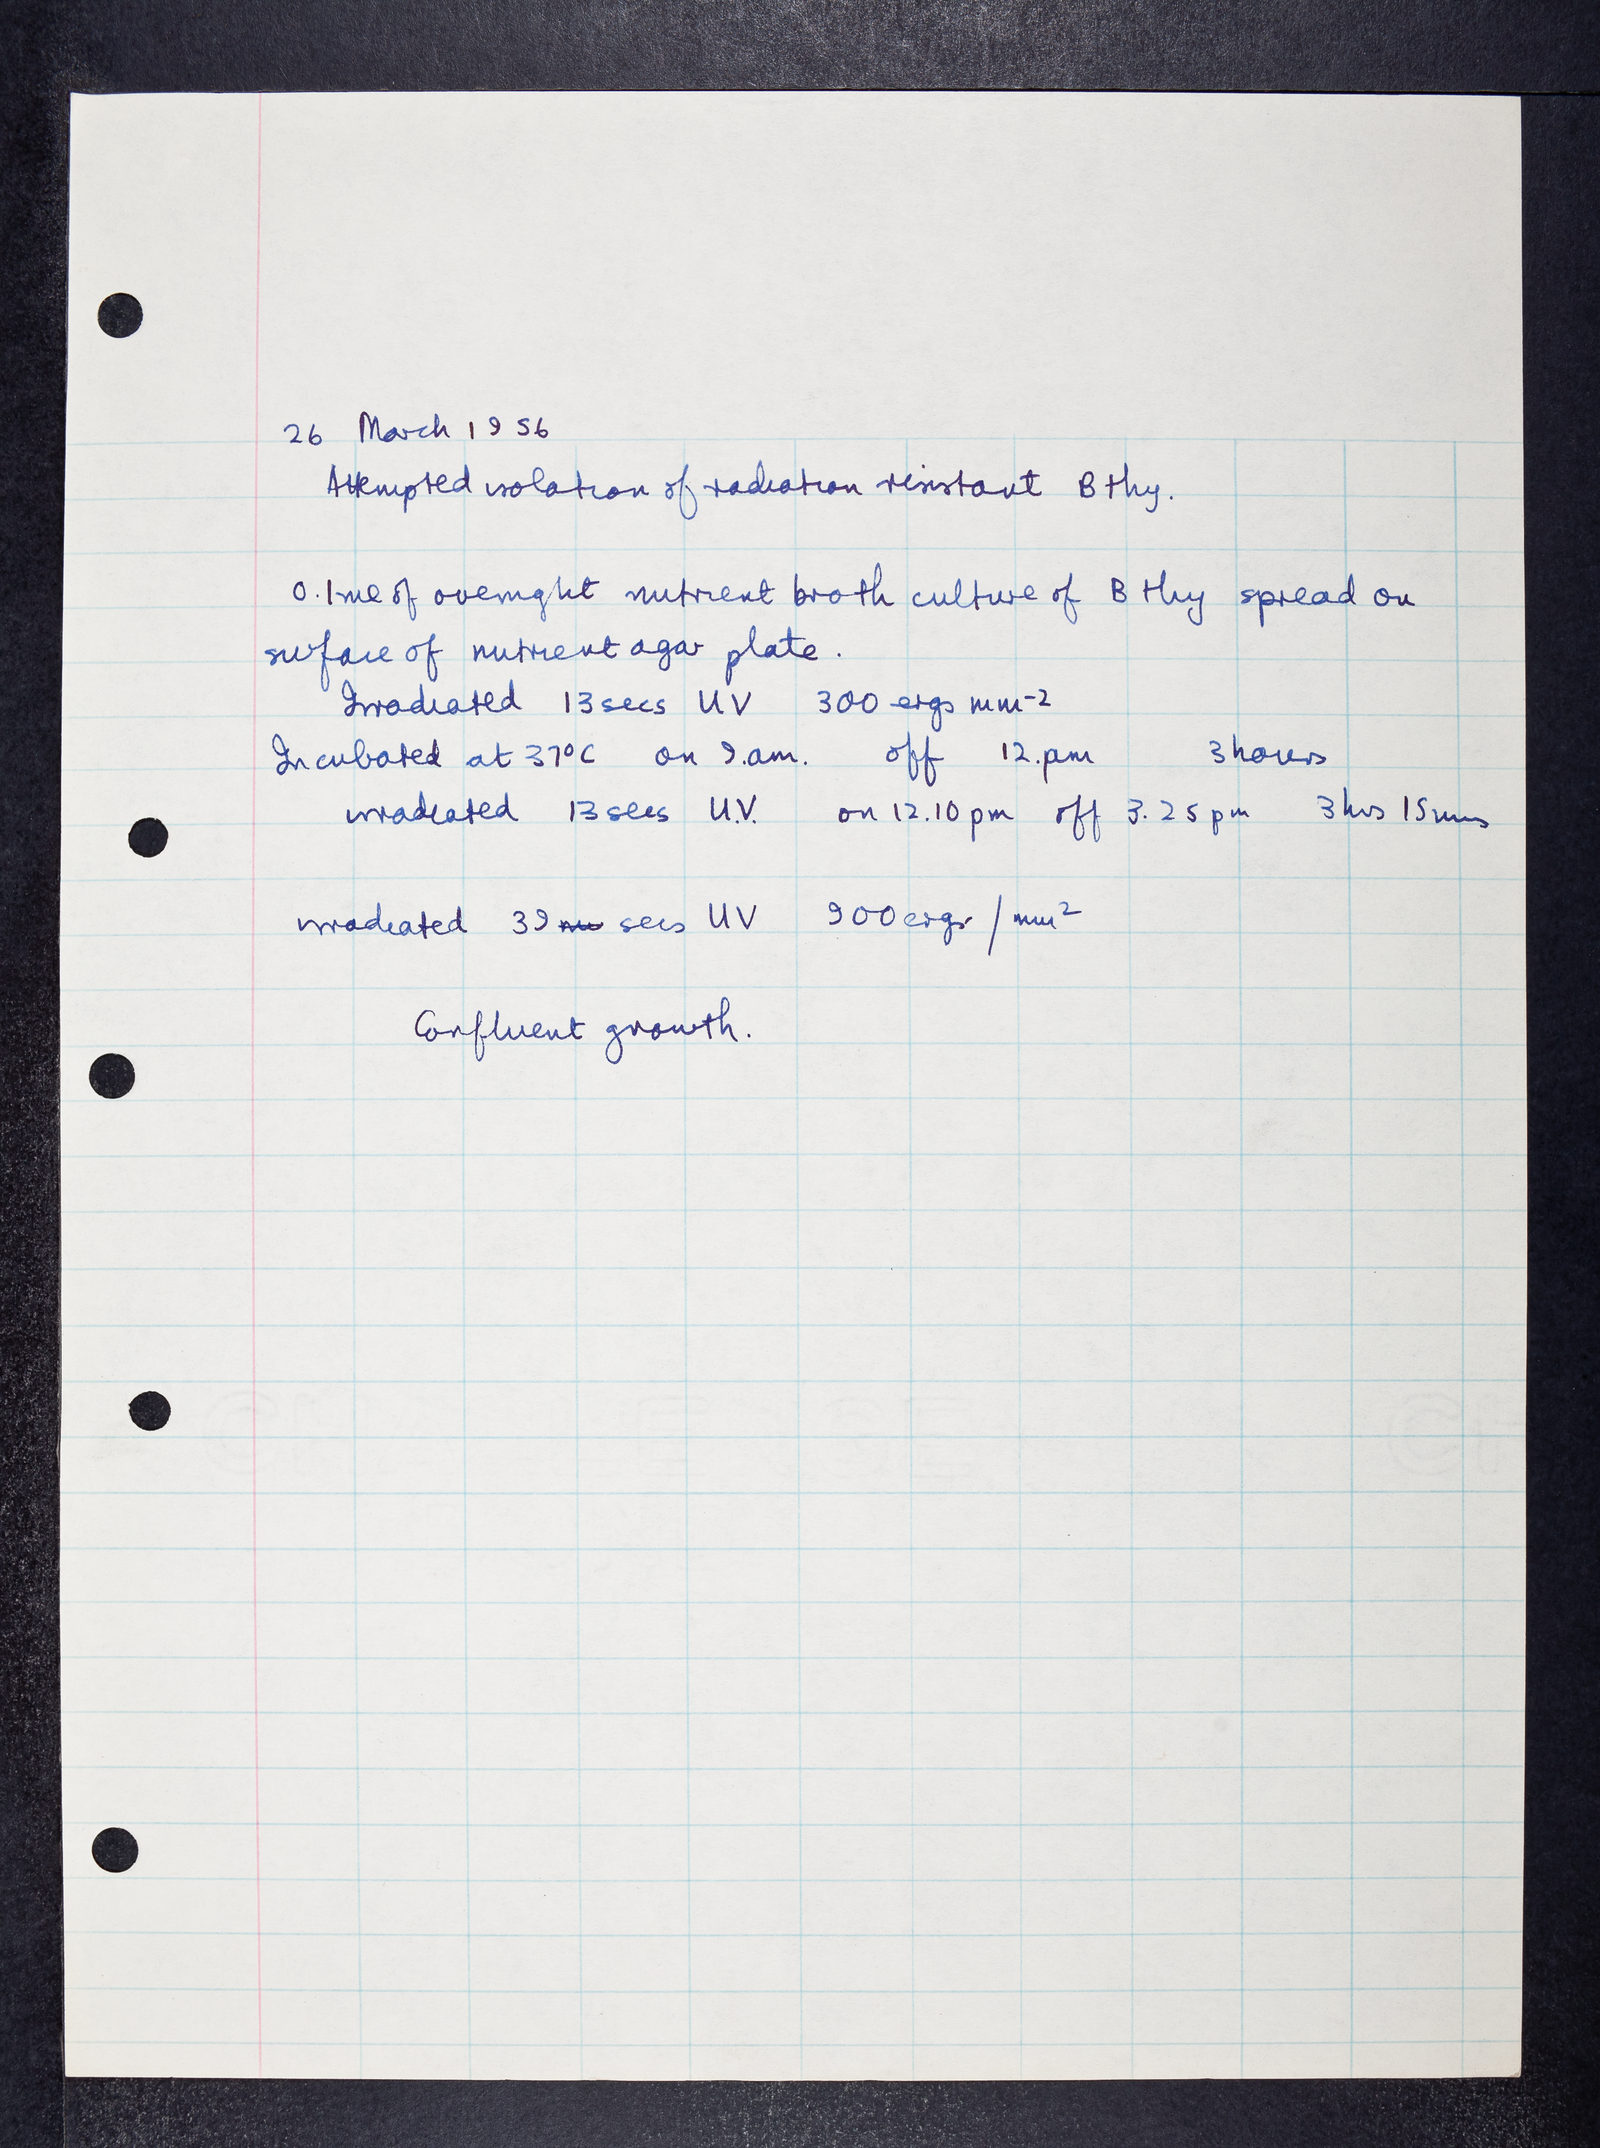 26 March 1956
Attempted isolation of radiation resistant B thy.
0.1ml of overnight nutrient broth culture of B thy spread on
surface of nutrient agar plate.
Irradiated 13 secs UV 300 ergs mm-2
Incubated at 37°C on 9.am. off 12.pm 3 hours
irradiated 13 secs U.V. on 12.10 pm off 3.25 pm 3 hrs 15 mins
irradiated 39 secs UV 900 ergs / mm2
Confluent growth.